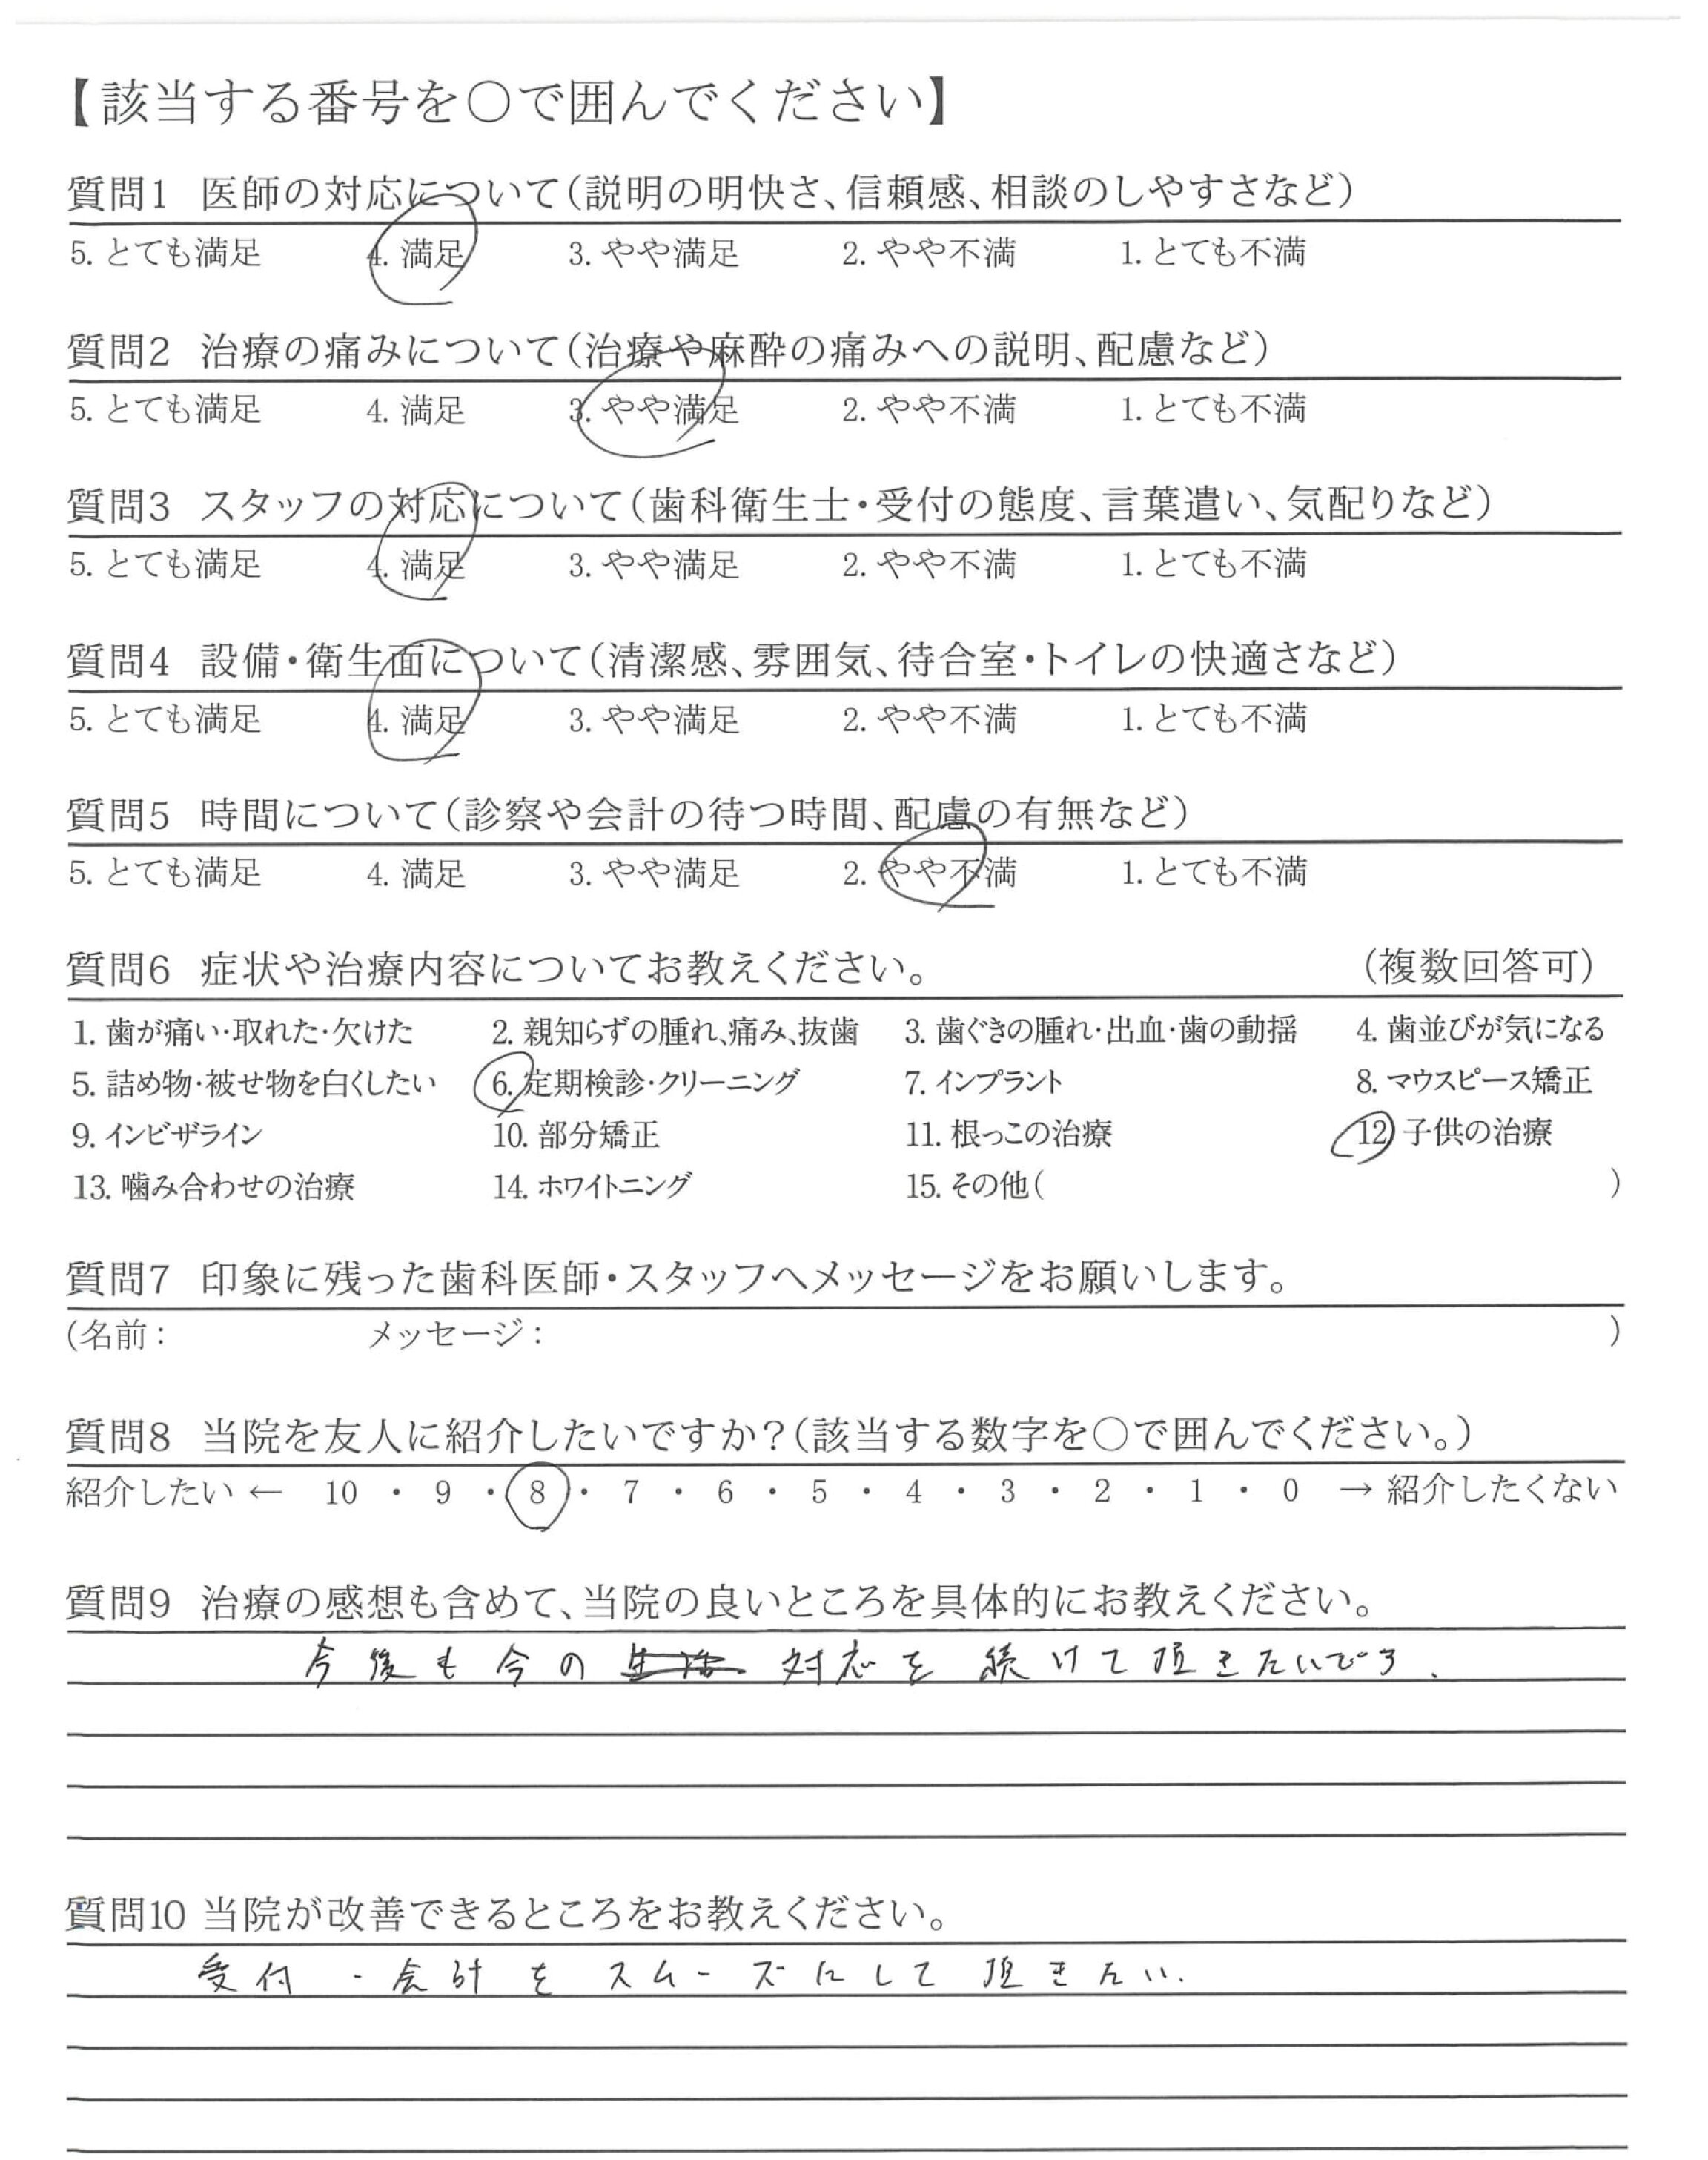 【該当する番号を○で囲んでください】
質問1 医師の対応について(説明の明快さ、信頼感、相談のしやすさなど)
5. とても満足 4. 満足 3. やや満足 2. やや不満 1. とても不満
質問2 治療の痛みについて(治療や麻酔の痛みへの説明、配慮など)
5. とても満足 4. 満足 3. やや満足 2. やや不満 1. とても不満
質問3 スタッフの対応について(歯科衛生士・受付の態度、言葉遣い、気配りなど)
5. とても満足 4. 満足 3. やや満足 2. やや不満 1. とても不満
質問4 設備・衛生面について(清潔感、雰囲気、待合室・トイレの快適さなど)
5. とても満足 4. 満足 3. やや満足 2. やや不満 1. とても不満
質問5 時間について(診察や会計の待つ時間、配慮の有無など)
5. とても満足 4. 満足 3. やや満足 2. やや不満 1. とても不満
質問6 症状や治療内容についてお教えください。 (複数回答可)
1. 歯が痛い・取れた・欠けた 2. 親知らずの腫れ、痛み、抜歯 3. 歯ぐきの腫れ・出血・歯の動揺 4. 歯並びが気になる
5. 詰め物・被せ物を白くしたい 6. 定期検診・クリーニング 7. インプラント 8. マウスピース矯正
9. インビザライン 10. 部分矯正 11. 根っこの治療 12 子供の治療
13. 噛み合わせの治療 14. ホワイトニング 15. その他( )
質問7 印象に残った歯科医師・スタッフへメッセージをお願いします。
(名前： メッセージ： )
質問8 当院を友人に紹介したいですか？(該当する数字を○で囲んでください。)
紹介したい ← 10 ・ 9 ・ 8 ・ 7 ・ 6 ・ 5 ・ 4 ・ 3 ・ 2 ・ 1 ・ 0 → 紹介したくない
質問9 治療の感想も含めて、当院の良いところを具体的にお教えください。
今後も今の 対応を続けて頂きたいです.
質問10 当院が改善できるところをお教えください。
受付・会計をスムーズにして頂きたい.